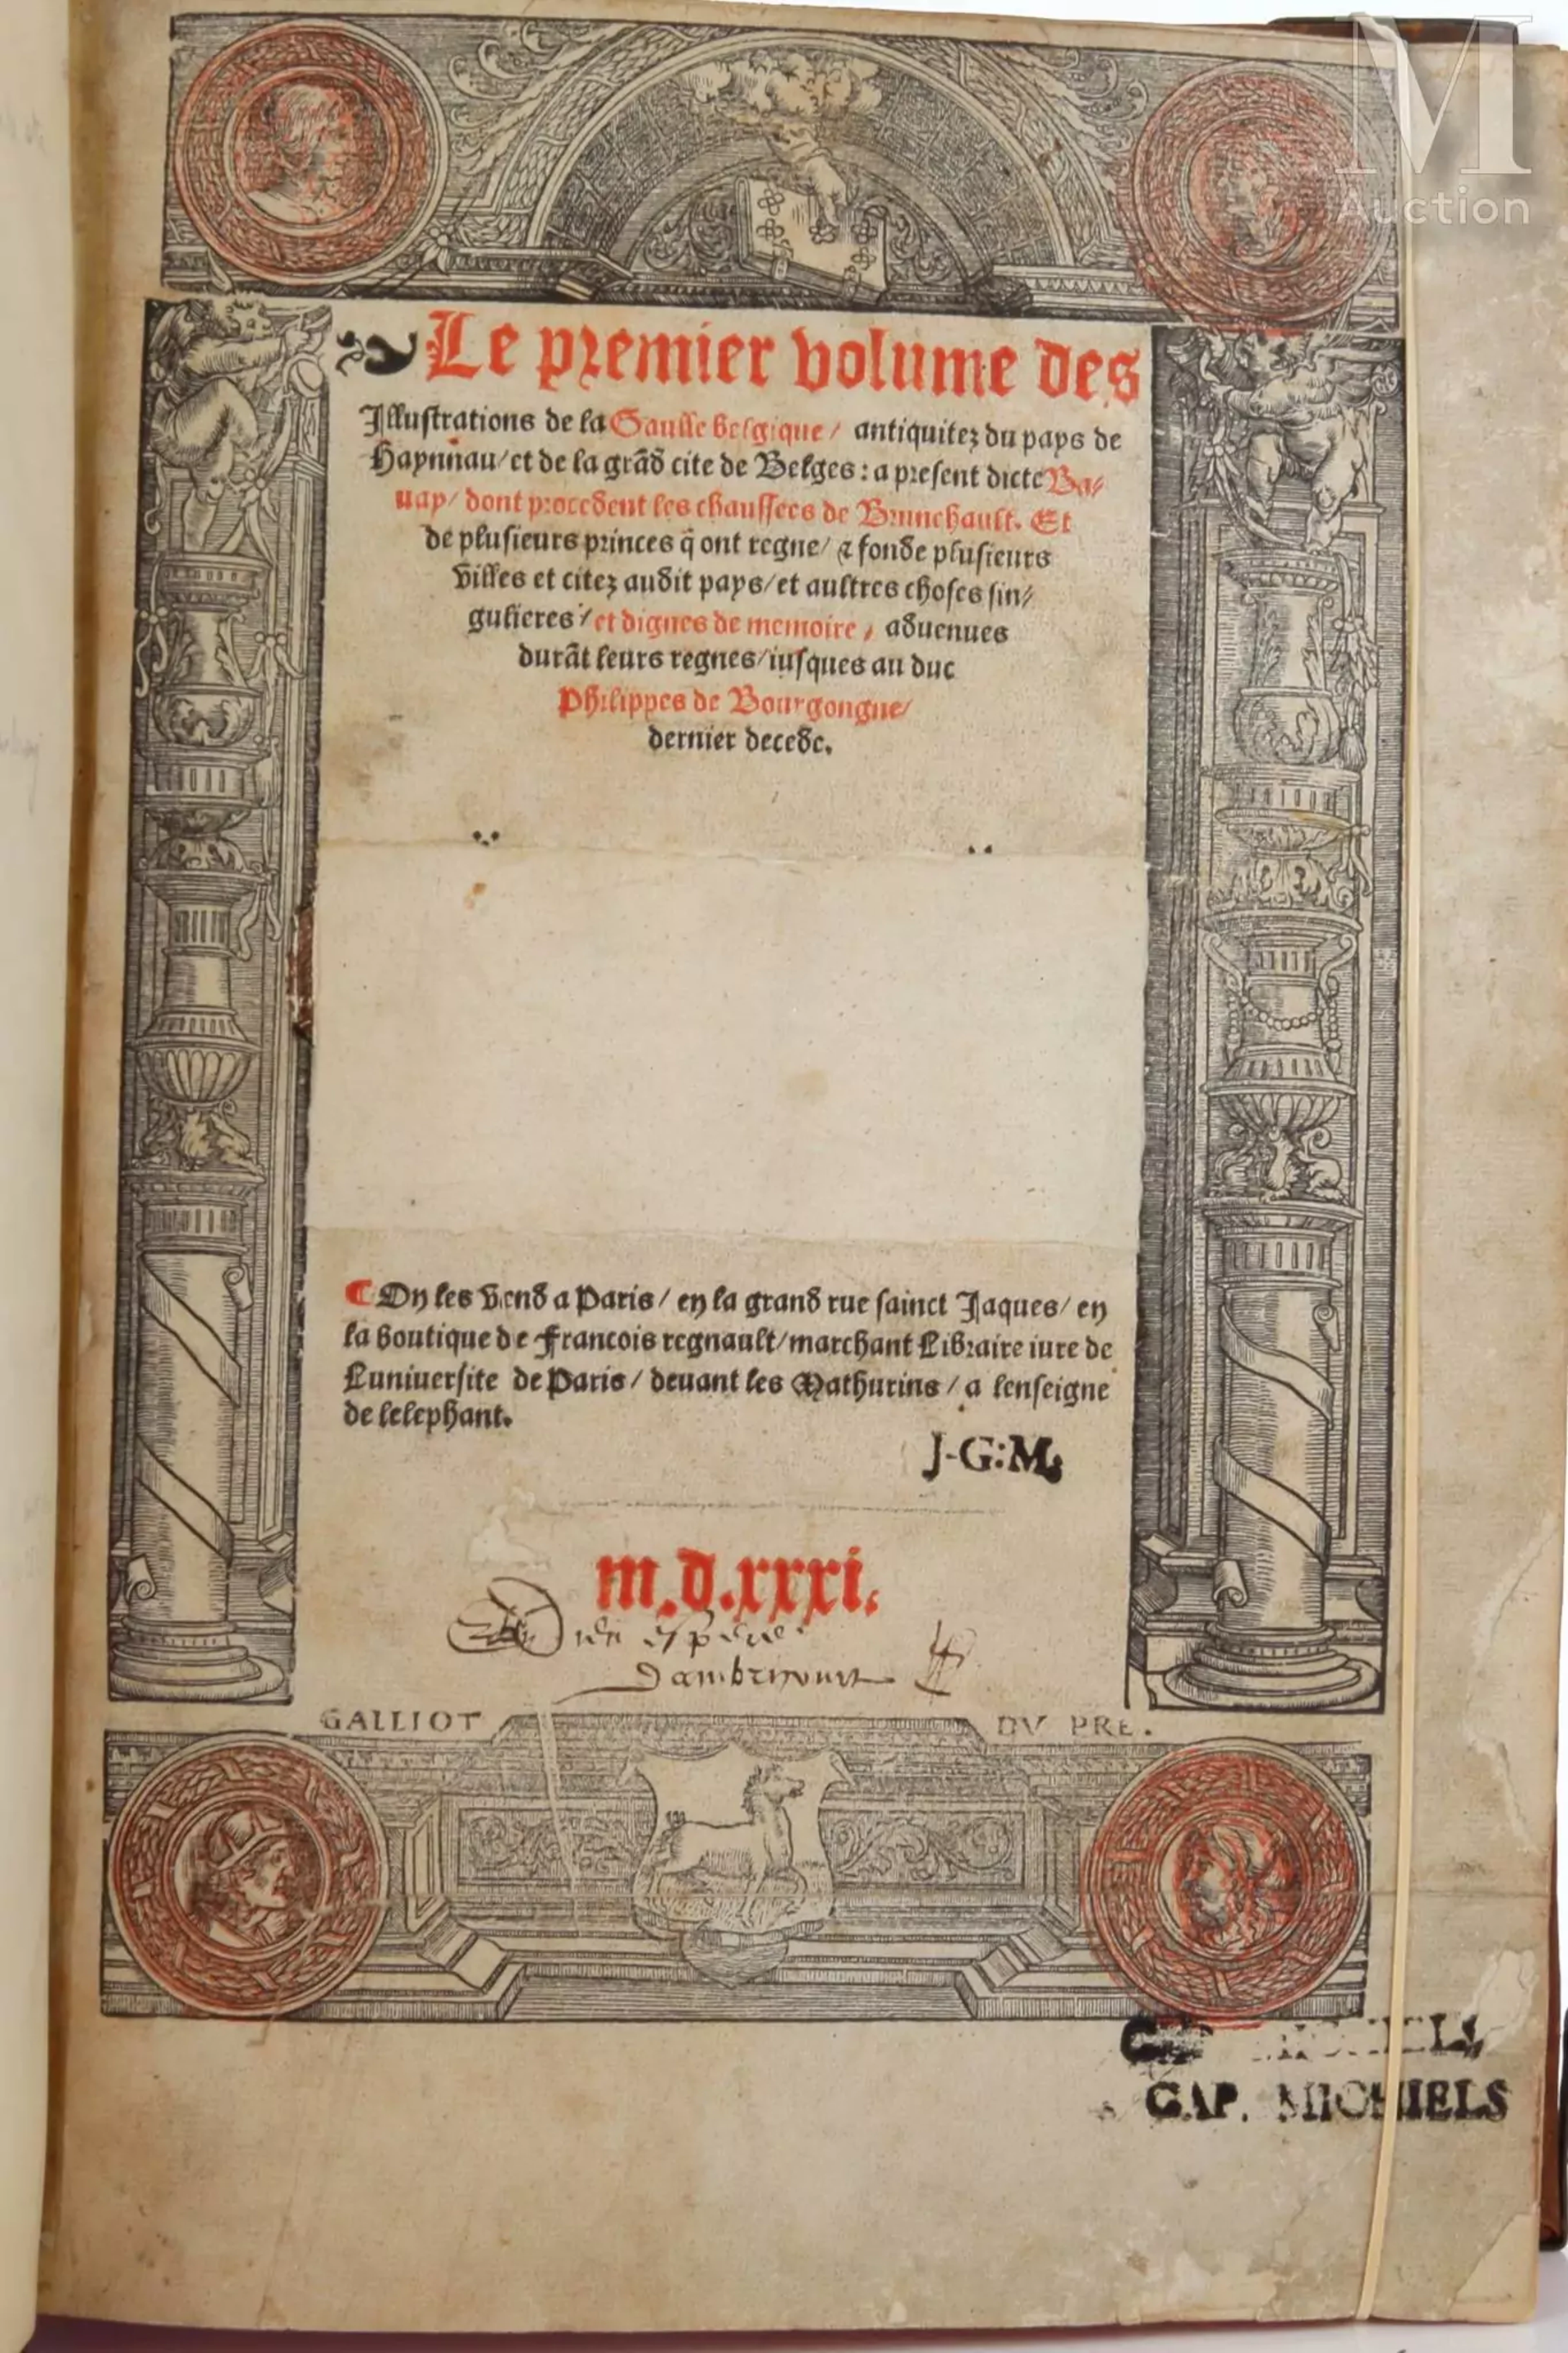 M
Auction
Le premier volume des
Illustrations de la Gaulle belgique / antiquitez du pays de
Haynnau / et de la grãd cite de Belges : a present dicte Ba⸗
uay / dont procedent les chaussees de Brunehault. Et
de plusieurs princes q̃ ont regne / ⁊ fonde plusieurs
villes et citez audit pays / et aultres choses sin⸗
gulieres / et dignes de memoire / aduenues
durãt leurs regnes / iusques au duc
Philippes de Bourgongne /
dernier decede.
¶ On les vend a Paris / en la grand rue sainct Jaques / en
la boutique de Francois regnault / marchant Libraire iure de
Luniuersite de Paris / deuant les Mathurins / a lenseigne
de lelephant.
J-G:M.
m.d.xxxi.
Dieu espere
Dambricourt
GALLIOT DV PRE.
CAP. MICHIELS